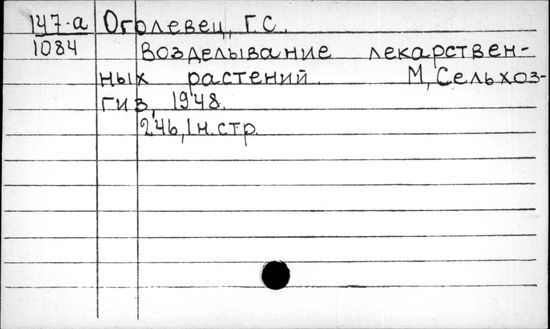 147-а Оголевец, Г.С.
1084
Возделывание лекарствен-
ных растений. М, Сельхоз-
гиз, 1948.
246, 1 н. стр.